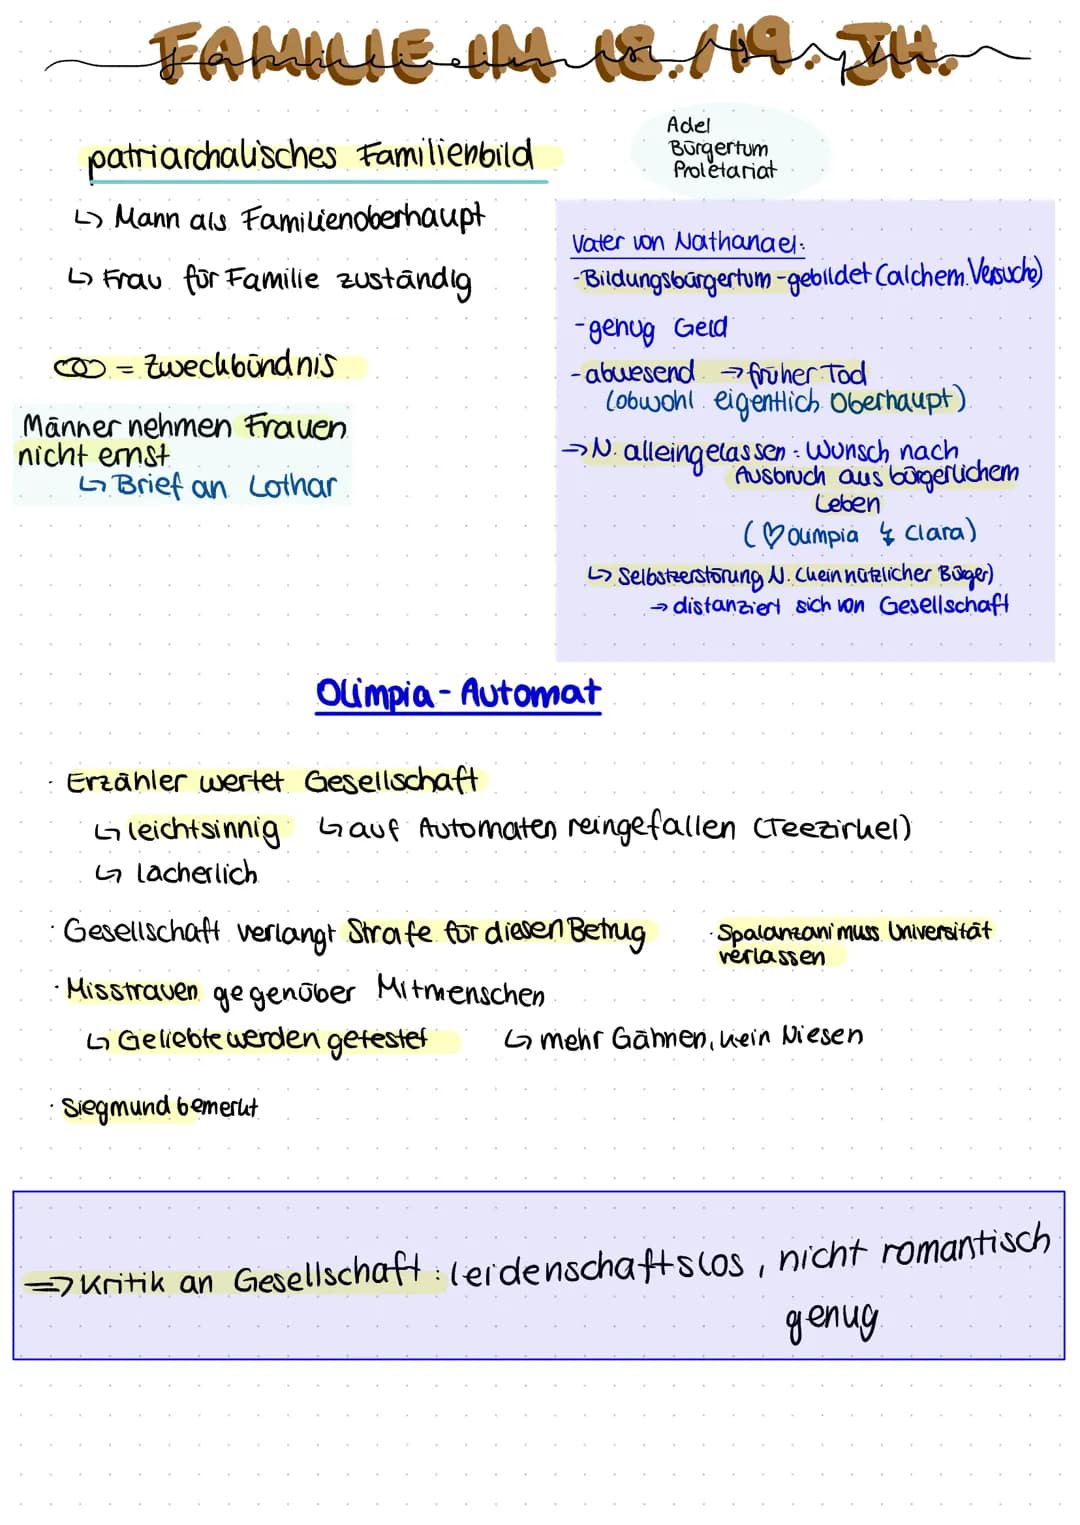 FAMILIE IM 18./19. JH.
Familie im 18./19. Jh.
Adel
Bürgertum
Proletariat
patriarchalisches Familienbild
↳ Mann als Familienoberhaupt
↳ Frau für Familie zuständig
= Zweckbündnis
Männer nehmen Frauen
nicht ernst
↳ Brief an Lothar
Vater von Nathanael:
-Bildungsbürgertum - gebildet (alchem. Versuche)
-genug Geld
-abwesend → früher Tod
(obwohl eigentlich Oberhaupt)
→ N. alleingelassen: Wunsch nach
Ausbruch aus bürgerlichem
Leben
(♡ Olimpia ↯ Clara)
↳ Selbstzerstörung N. (kein nützlicher Bürger)
→ distanziert sich von Gesellschaft
Olimpia - Automat
· Erzähler wertet Gesellschaft
↳ leichtsinnig ↳ auf Automaten reingefallen (Teezirkel)
↳ lächerlich
· Gesellschaft verlangt Strafe für diesen Betrug
· Spalanzani muss Universität
verlassen
· Misstrauen gegenüber Mitmenschen
↳ Geliebte werden getestet ↳ mehr Gähnen, kein Niesen
· Siegmund bemerkt
⇒ Kritik an Gesellschaft: leidenschaftslos, nicht romantisch
genug